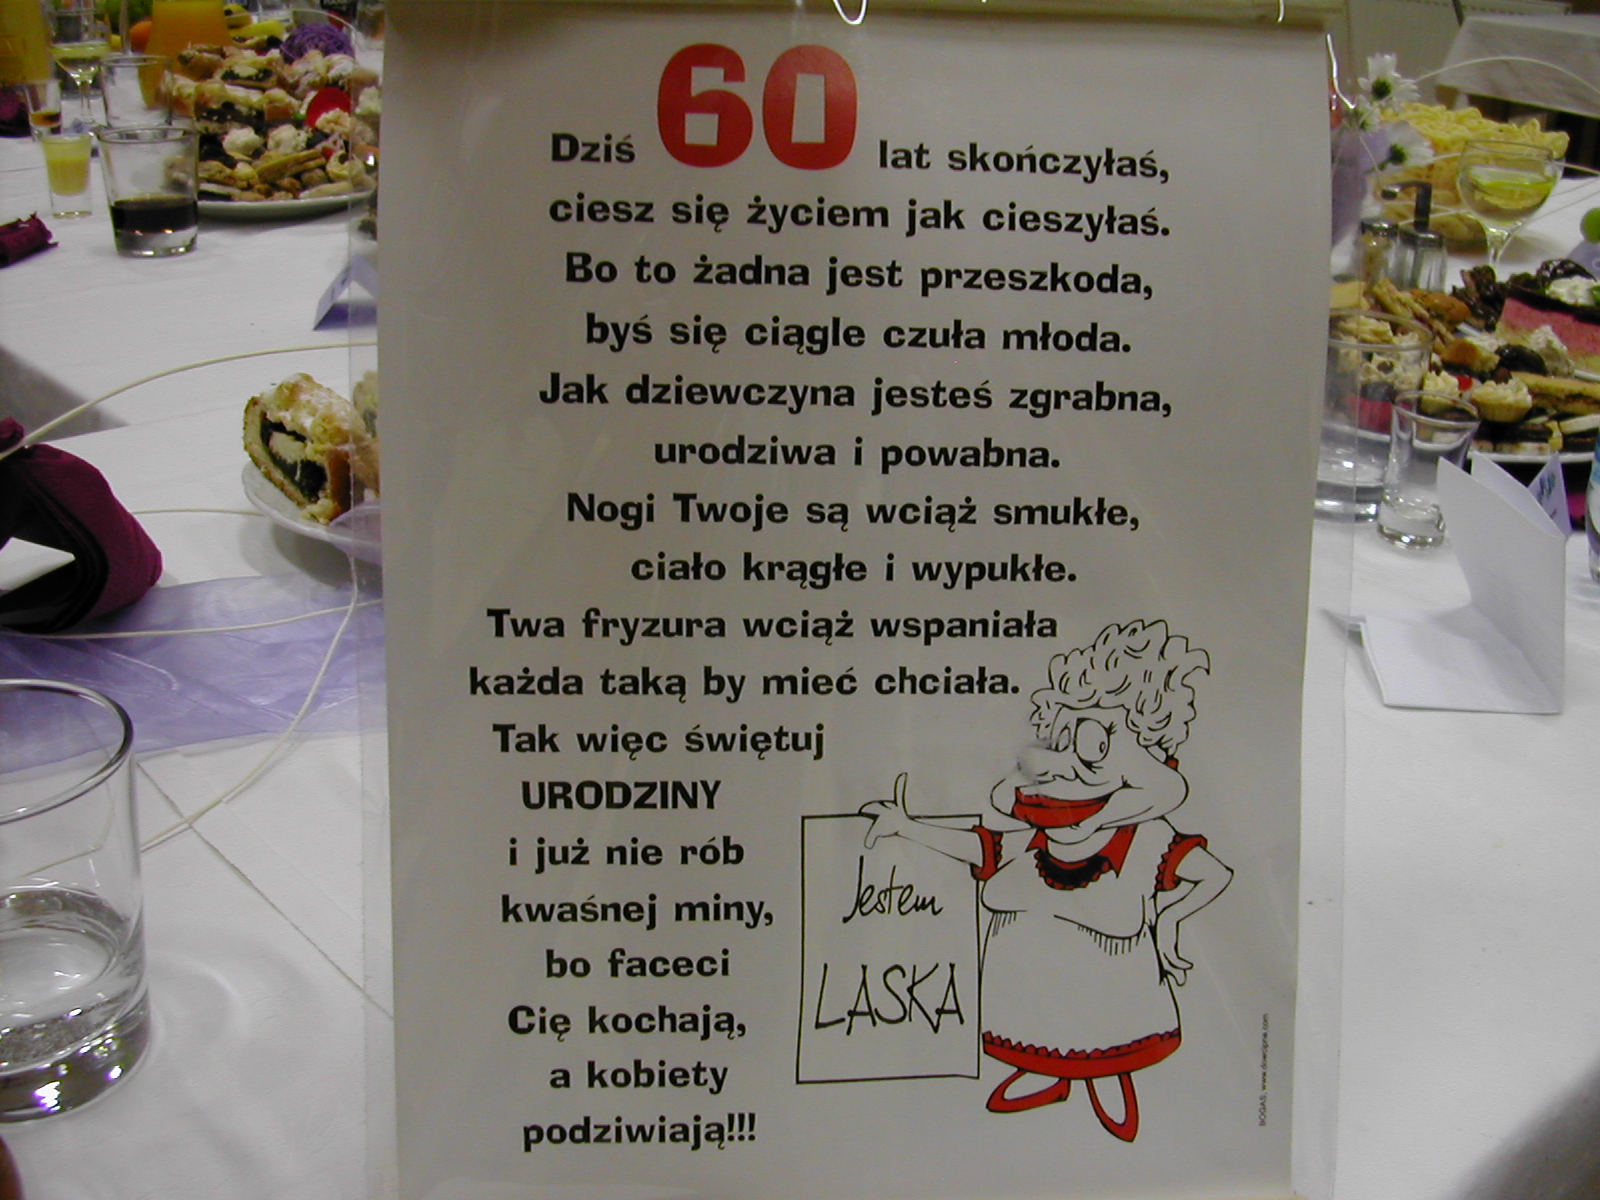 Dziś 60 lat skończyłaś,
ciesz się życiem jak cieszyłaś.
Bo to żadna jest przeszkoda,
byś się ciągle czuła młoda.
Jak dziewczyna jesteś zgrabna,
urodziwa i powabna.
Nogi Twoje są wciąż smukłe,
ciało krągłe i wypukłe.
Twa fryzura wciąż wspaniała
każda taką by mieć chciała.
Tak więc świętuj
URODZINY
i już nie rób
kwaśnej miny,
bo faceci
Cię kochają,
a kobiety
podziwiają!!!
Jestem
LASKA
BOGAS, www.dowcipne.com